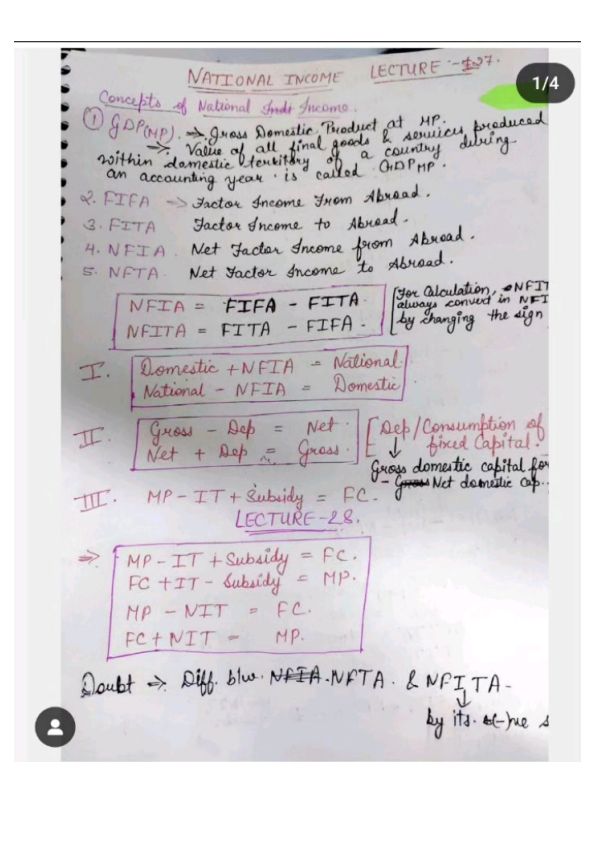 1/4
NATIONAL INCOME LECTURE :- 27.
Concepts of National Income.
① GDP(MP). → Gross Domestic Product at MP.
→ Value of all final goods & services produced
within domestic territory of a country during
an accounting year is called GDPMP.
2. FIFA → Factor Income From Abroad.
3. FITA Factor Income to Abroad.
4. NFIA. Net Factor Income from Abroad.
5. NFTA. Net Factor Income to Abroad.
NFIA = FIFA - FITA.
NFITA = FITA - FIFA.
[For Calculation, NFIT
always convert in NFI
by changing the sign
I. Domestic + NFIA = National.
National - NFIA = Domestic
II. Gross - Dep = Net.
Net + Dep = Gross.
[Dep/Consumption of
fixed Capital.
↓
Gross domestic capital for
- Net domestic cap..
III. MP - IT + Subsidy = FC.
LECTURE-28.
⇒ MP - IT + Subsidy = FC.
FC + IT - Subsidy = MP.
MP - NIT = FC.
FC + NIT = MP.
Doubt → Diff. b/w. NFIA. NFTA. & NFITA-
↓
by its (-)ve s